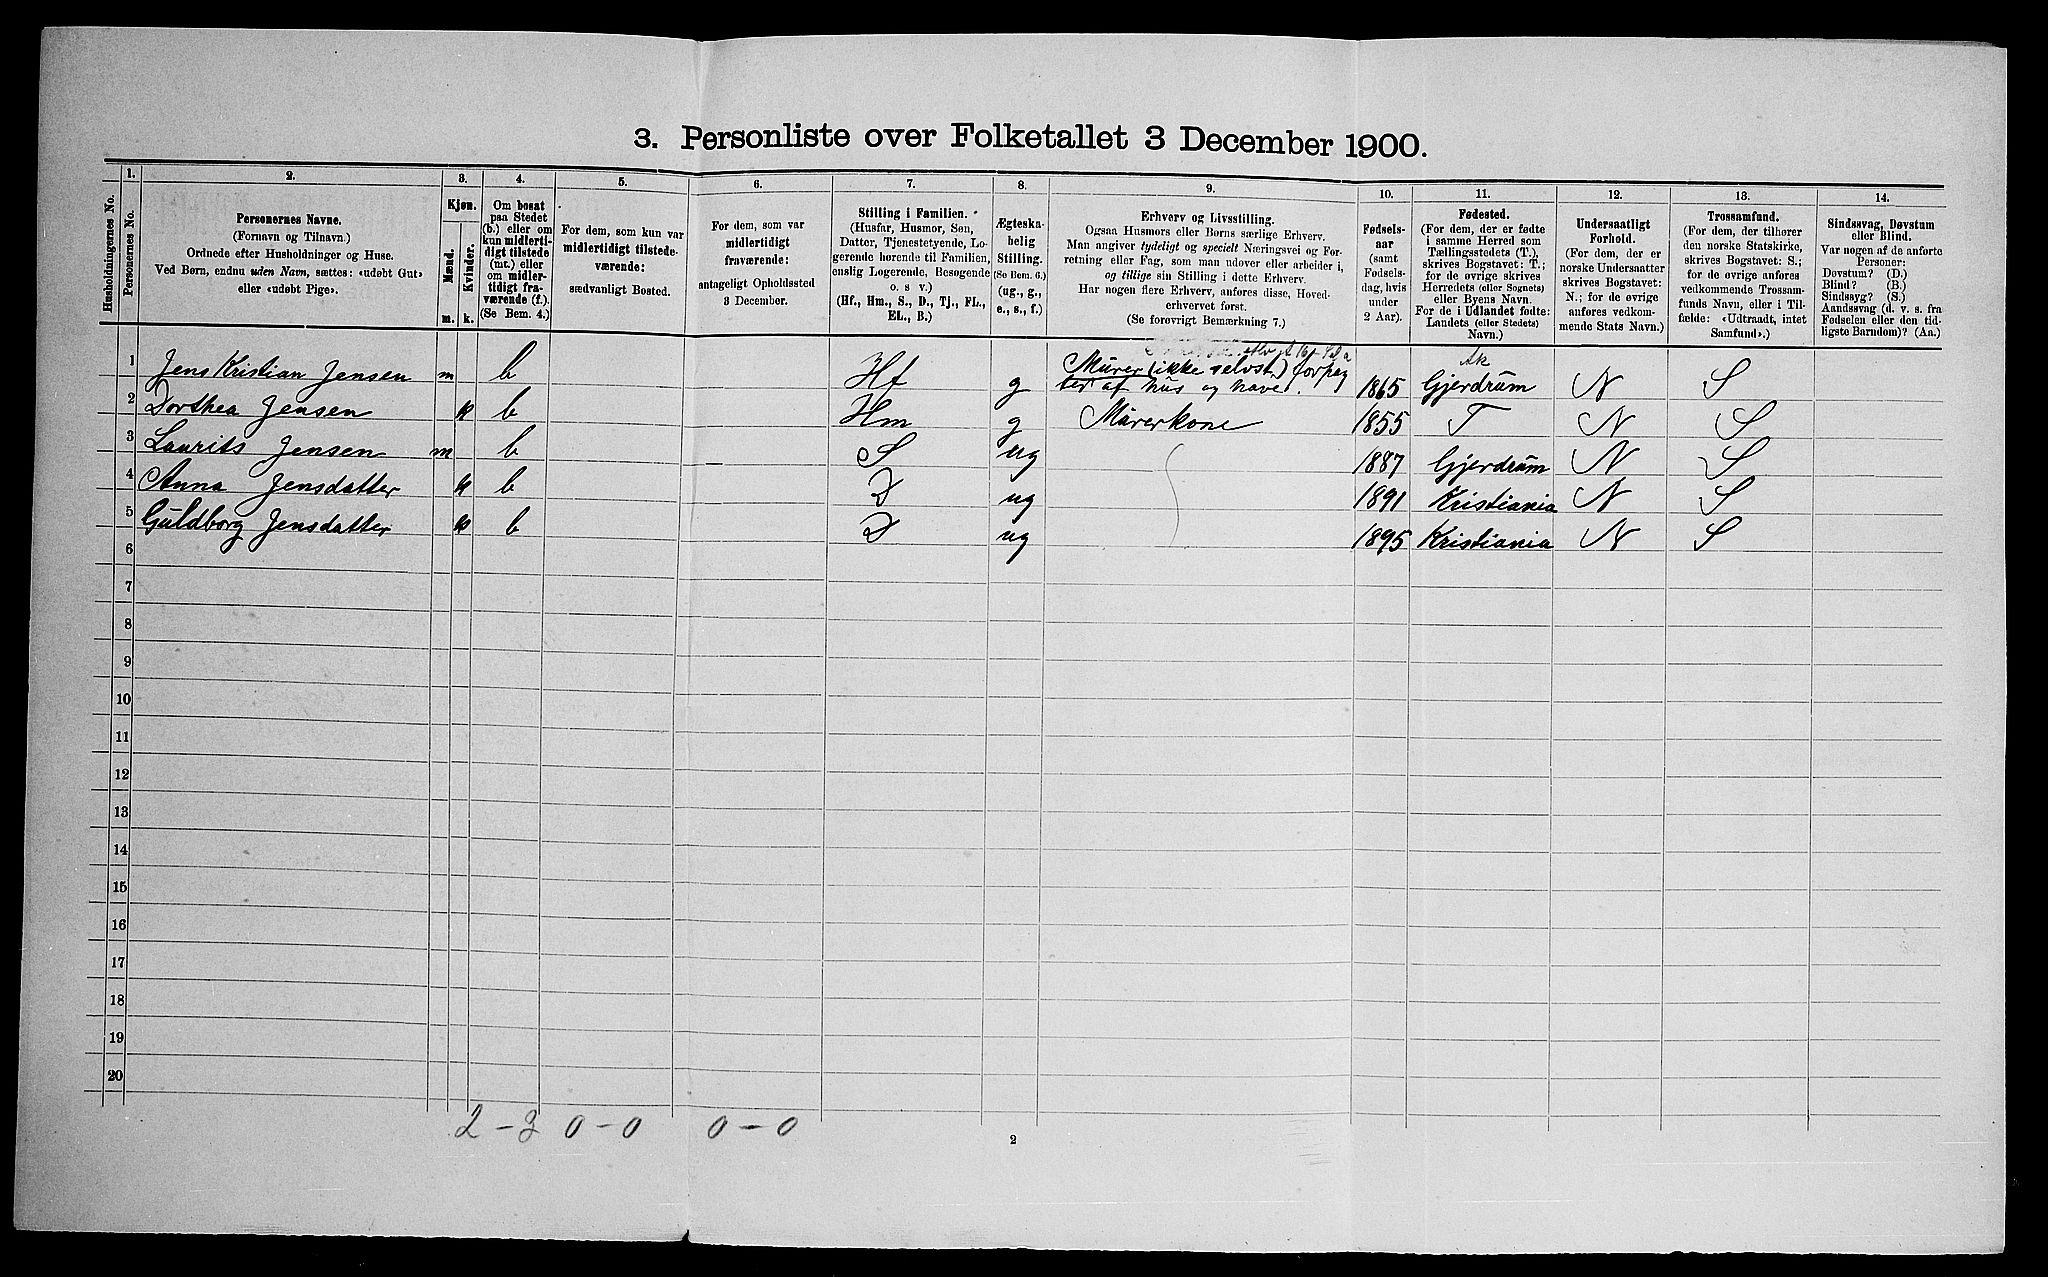 3. Personliste over Folketallet 3 December 1900.
Husholdningernes No.
1.
Personernes No.
2.
Personernes Navne.
(Fornavn og Tilnavn.)
Ordnede efter Husholdninger og Huse.
Ved Børn, endnu uden Navn, sættes: «udøbt Gut»
eller «udøbt Pige».
3.
Kjøn.
Mænd.
Kvinder.
m. k.
4.
Om bosat
paa Stedet
(b.) eller om
kun midlerti-
digt tilstede
(mt.) eller
om midler-
tidigt fra-
værende (f.).
(Se Bem. 4.)
5.
For dem, som kun var
midlertidigt tilstede-
værende:
sædvanligt Bosted.
6.
For dem, som var
midlertidigt
fraværende:
antageligt Opholdssted
3 December.
7.
Stilling i Familien.
(Husfar, Husmor, Søn,
Datter, Tjenestetyende, Lo-
gerende hørende til Familien,
enslig Logerende, Besøgende
o. s v.)
(Hf., Hm., S., D., Tj., FL.,
EL., B.)
8.
Ægteska-
belig
Stilling.
(Se Bem. 6.)
(ug., g.,
e., s., f.)
9.
Erhverv og Livsstilling.
Ogsaa Husmors eller Børns særlige Erhverv.
Man angiver tydeligt og specielt Næringsvei og For-
retning eller Fag, som man udover eller arbeider i,
og tillige sin Stilling i dette Erhverv.
Har nogen flere Erhverv, anføres disse, Hoved-
erhvervet først.
(Se forøvrigt Bemærkning 7.)
10.
Fødsels-
aar
(samt
Fødsels-
dag, hvis
under
2 Aar).
11.
Fødested.
(For dem, der er fødte
i samme Herred som
Tællingsstedets (T.),
skrives Bogstavet: T.;
for de øvrige skrives
Herredets (eller Sognets)
eller Byens Navn.
For de i Udlandet fødte:
Landets (eller Stedets)
Navn.)
12.
Undersaatligt
Forhold.
(For dem, der er
norske Undersaatter
skrives Bogstavet:
N.; for de øvrige
anføres vedkom-
mende Stats Navn.)
13.
Trossamfund.
(For dem, der tilhører
den norske Statskirke,
skrives Bogstavet: S.;
for de øvrige anføres
vedkommende Trossam-
funds Navn, eller i Til-
fælde: «Udtraadt, intet
Samfund».)
14.
Sindssvag, Døvstum
eller Blind.
Var nogen af de anførte
Personer:
Døvstum? (D.)
Blind? (B.)
Sindssyg? (S.)
Aandssvag (d. v. s. fra
Fødselen eller den tid-
ligste Barndom)? (Aa.)
1 Jens Kristian Jensen m b Hf g Mürer (ikke selvst.) forpag
ter af hus og have. 1865 Ak Gjerdrüm N S
2 Dorthea Jensen k b Hm g Mürerkone 1855 T N S
3 Laurits Jensen m b S ug 1887 Gjerdrüm N S
4 Anna Jensdatter k b D ug 1891 Kristiania N S
5 Güldborg Jensdatter k b D ug 1895 Kristiania N S
6
7
8
9
10
11
12
13
14
15
16
17
18
19
20
2 - 3 0 - 0 0 - 0
2